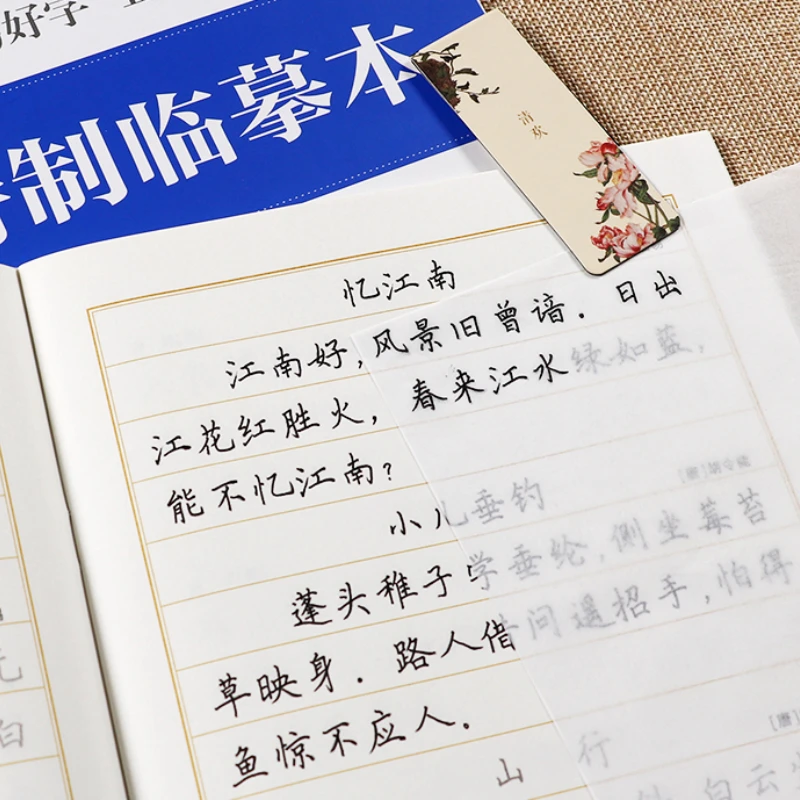 好字
制临摹本
清欢
忆江南
江南好,风景旧曾谙.日出
江花红胜火,春来江水绿如蓝,
能不忆江南?
[唐]胡令能
小儿垂钓
蓬头稚子学垂纶,侧坐莓苔
草映身.路人借问遥招手,怕得
鱼惊不应人.
[唐]
山行
白云
白